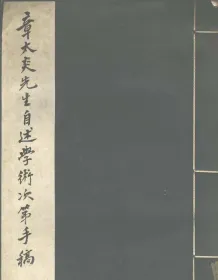 章太炎先生自述學術次第手稿